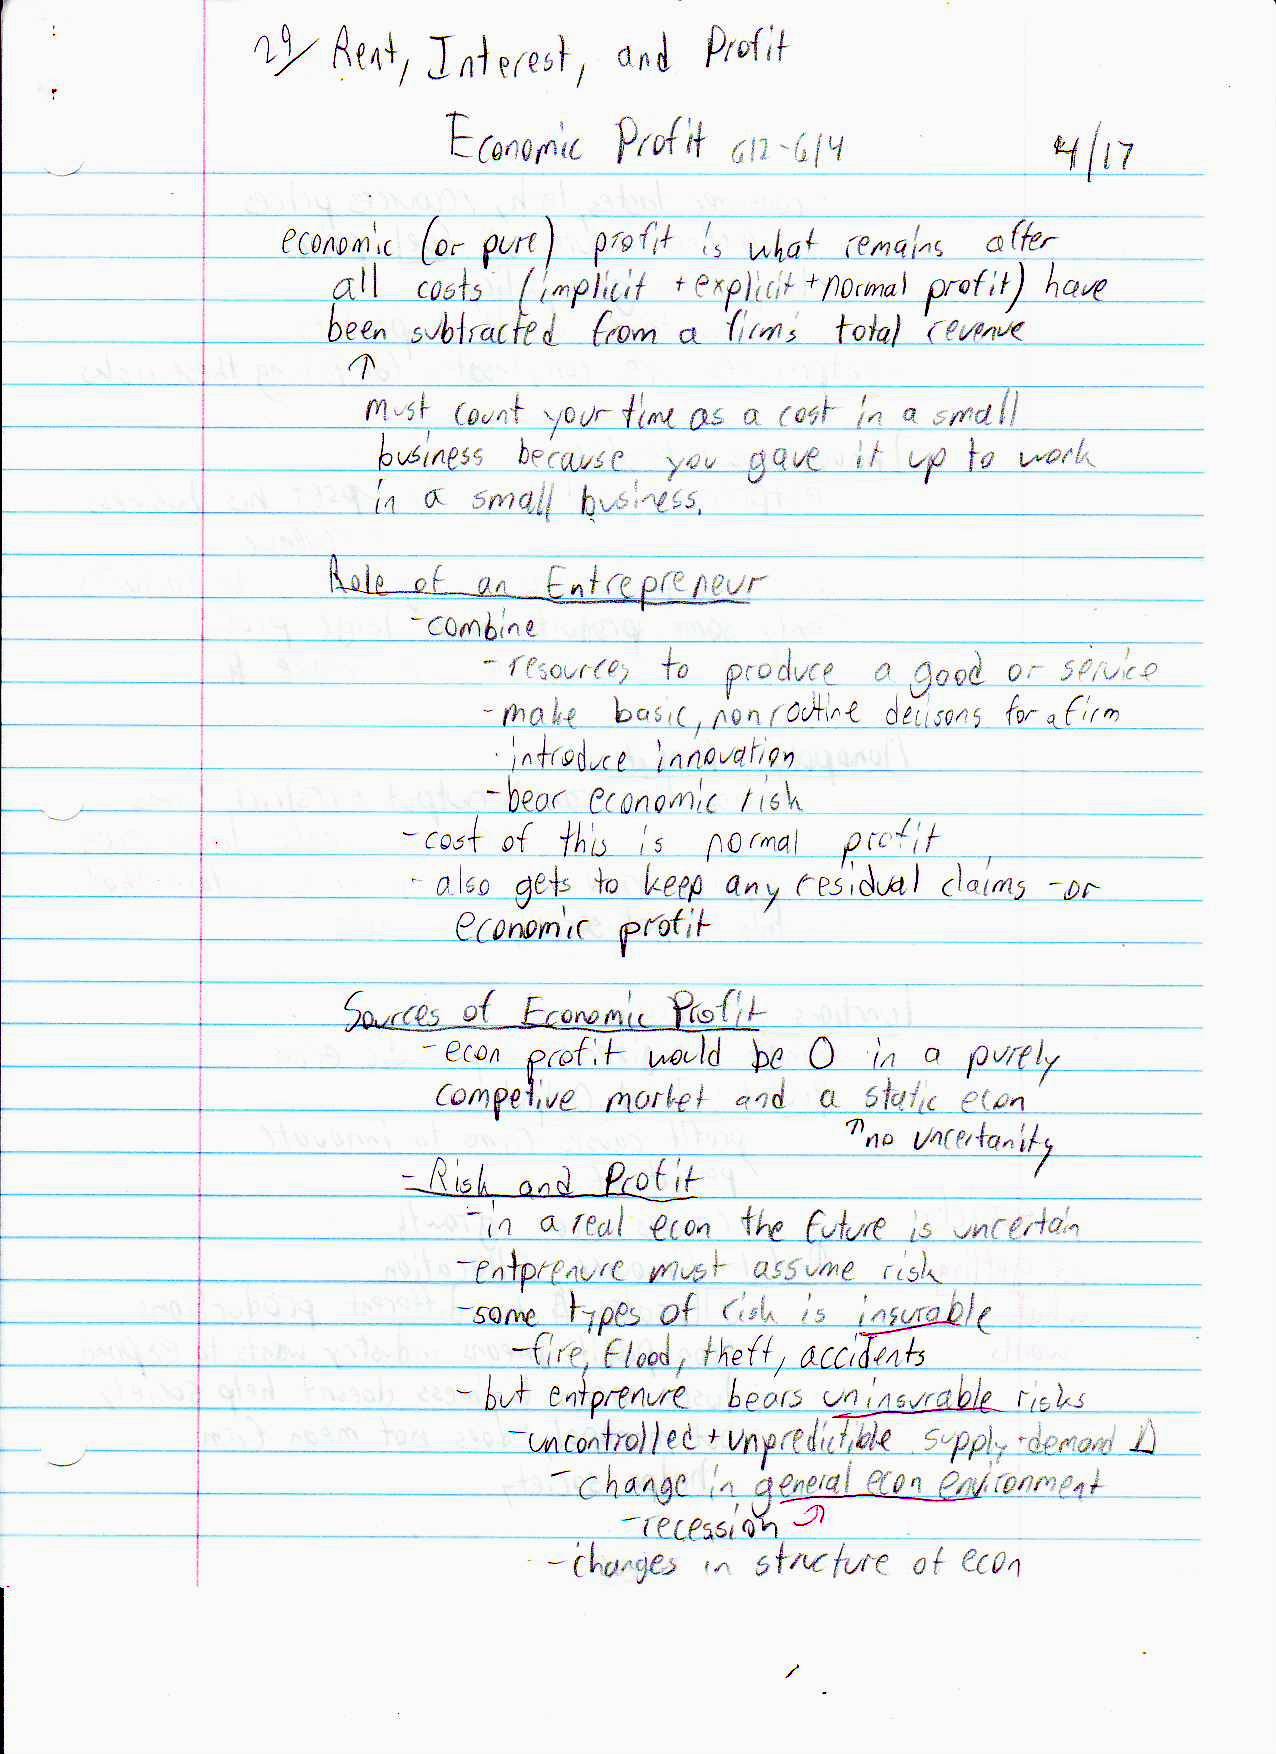 29/ Rent, Interest, and Profit
Economic Profit 612-614 4/17
economic (or pure) profit is what remains after
all costs (implicit + explicit + normal profit) have
been subtracted from a firms total revenue
↑
must count your time as a cost in a small
business because you gave it up to work
in a small business.
Role of an Entrepreneur
-combine
-resources to produce a good or service
-make basic, nonroutine decisons for a firm
-introduce innovation
-bear economic risk
-cost of this is normal profit
-also gets to keep any residual claims -or
economic profit
Sources of Economic Profit
-econ profit would be 0 in a purely
competive market and a static econ
↑no uncertanity
-Risk and Profit
-in a real econ the future is uncertain
-entprenure must assume risk
-some types of risk is insurable
-fire, flood, theft, accidents
-but entprenure bears uninsurable risks
-uncontrolled + unpredictible supply+demand Δ
-change in general econ environment
-recession ↑
-changes in structure of econ